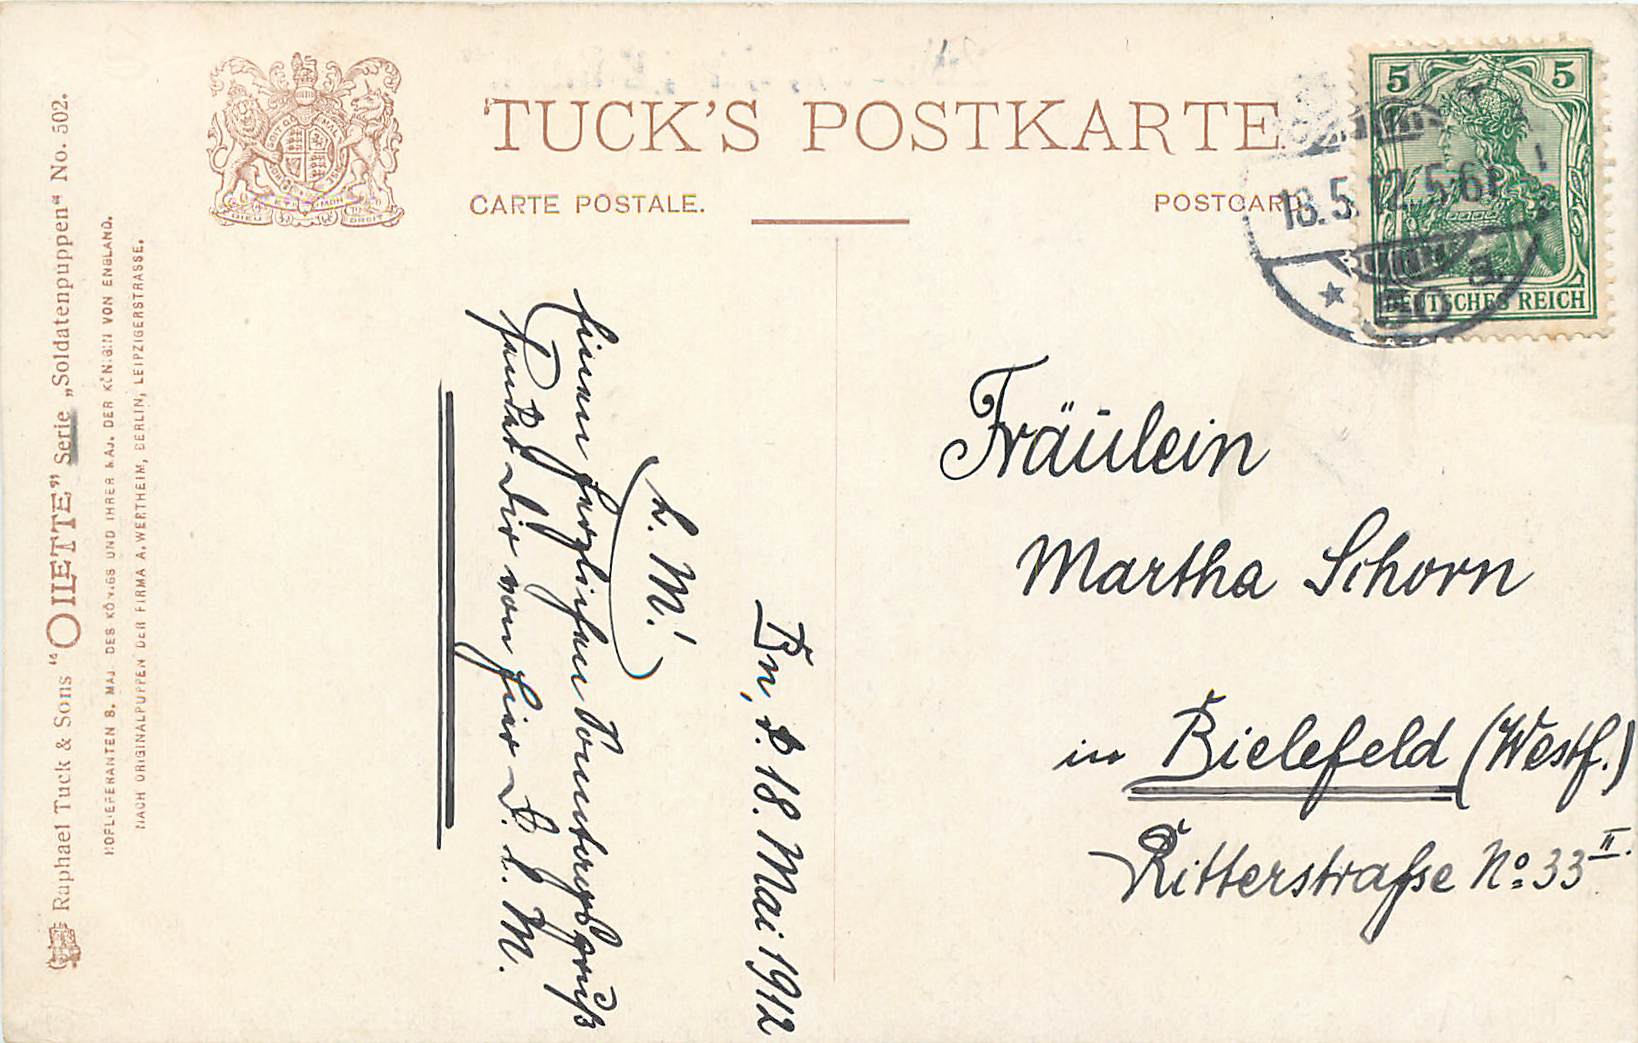 TUCK'S POSTKARTE
CARTE POSTALE.
POSTCARD.
Raphael Tuck & Sons "OILETTE" Serie „Soldatenpuppen“ No. 502.
HOFLIEFERANTEN S. MAJ. DES KÖNIGS UND IHRER MAJ. DER KÖNIGIN VON ENGLAND.
NACH ORIGINALPUPPEN DER FIRMA A. WERTHEIM, BERLIN, LEIPZIGERSTRASSE.
5 5
DEUTSCHES REICH
18.5.12. 5-6
Bn, d. 18. Mai 1912
L. M.!
Einen herzlichen Sonntagsgruß
sendet Dir von hier D. l. M.
Fräulein
Martha Schorn
in Bielefeld (Westf.)
Ritterstraße No 33 II.